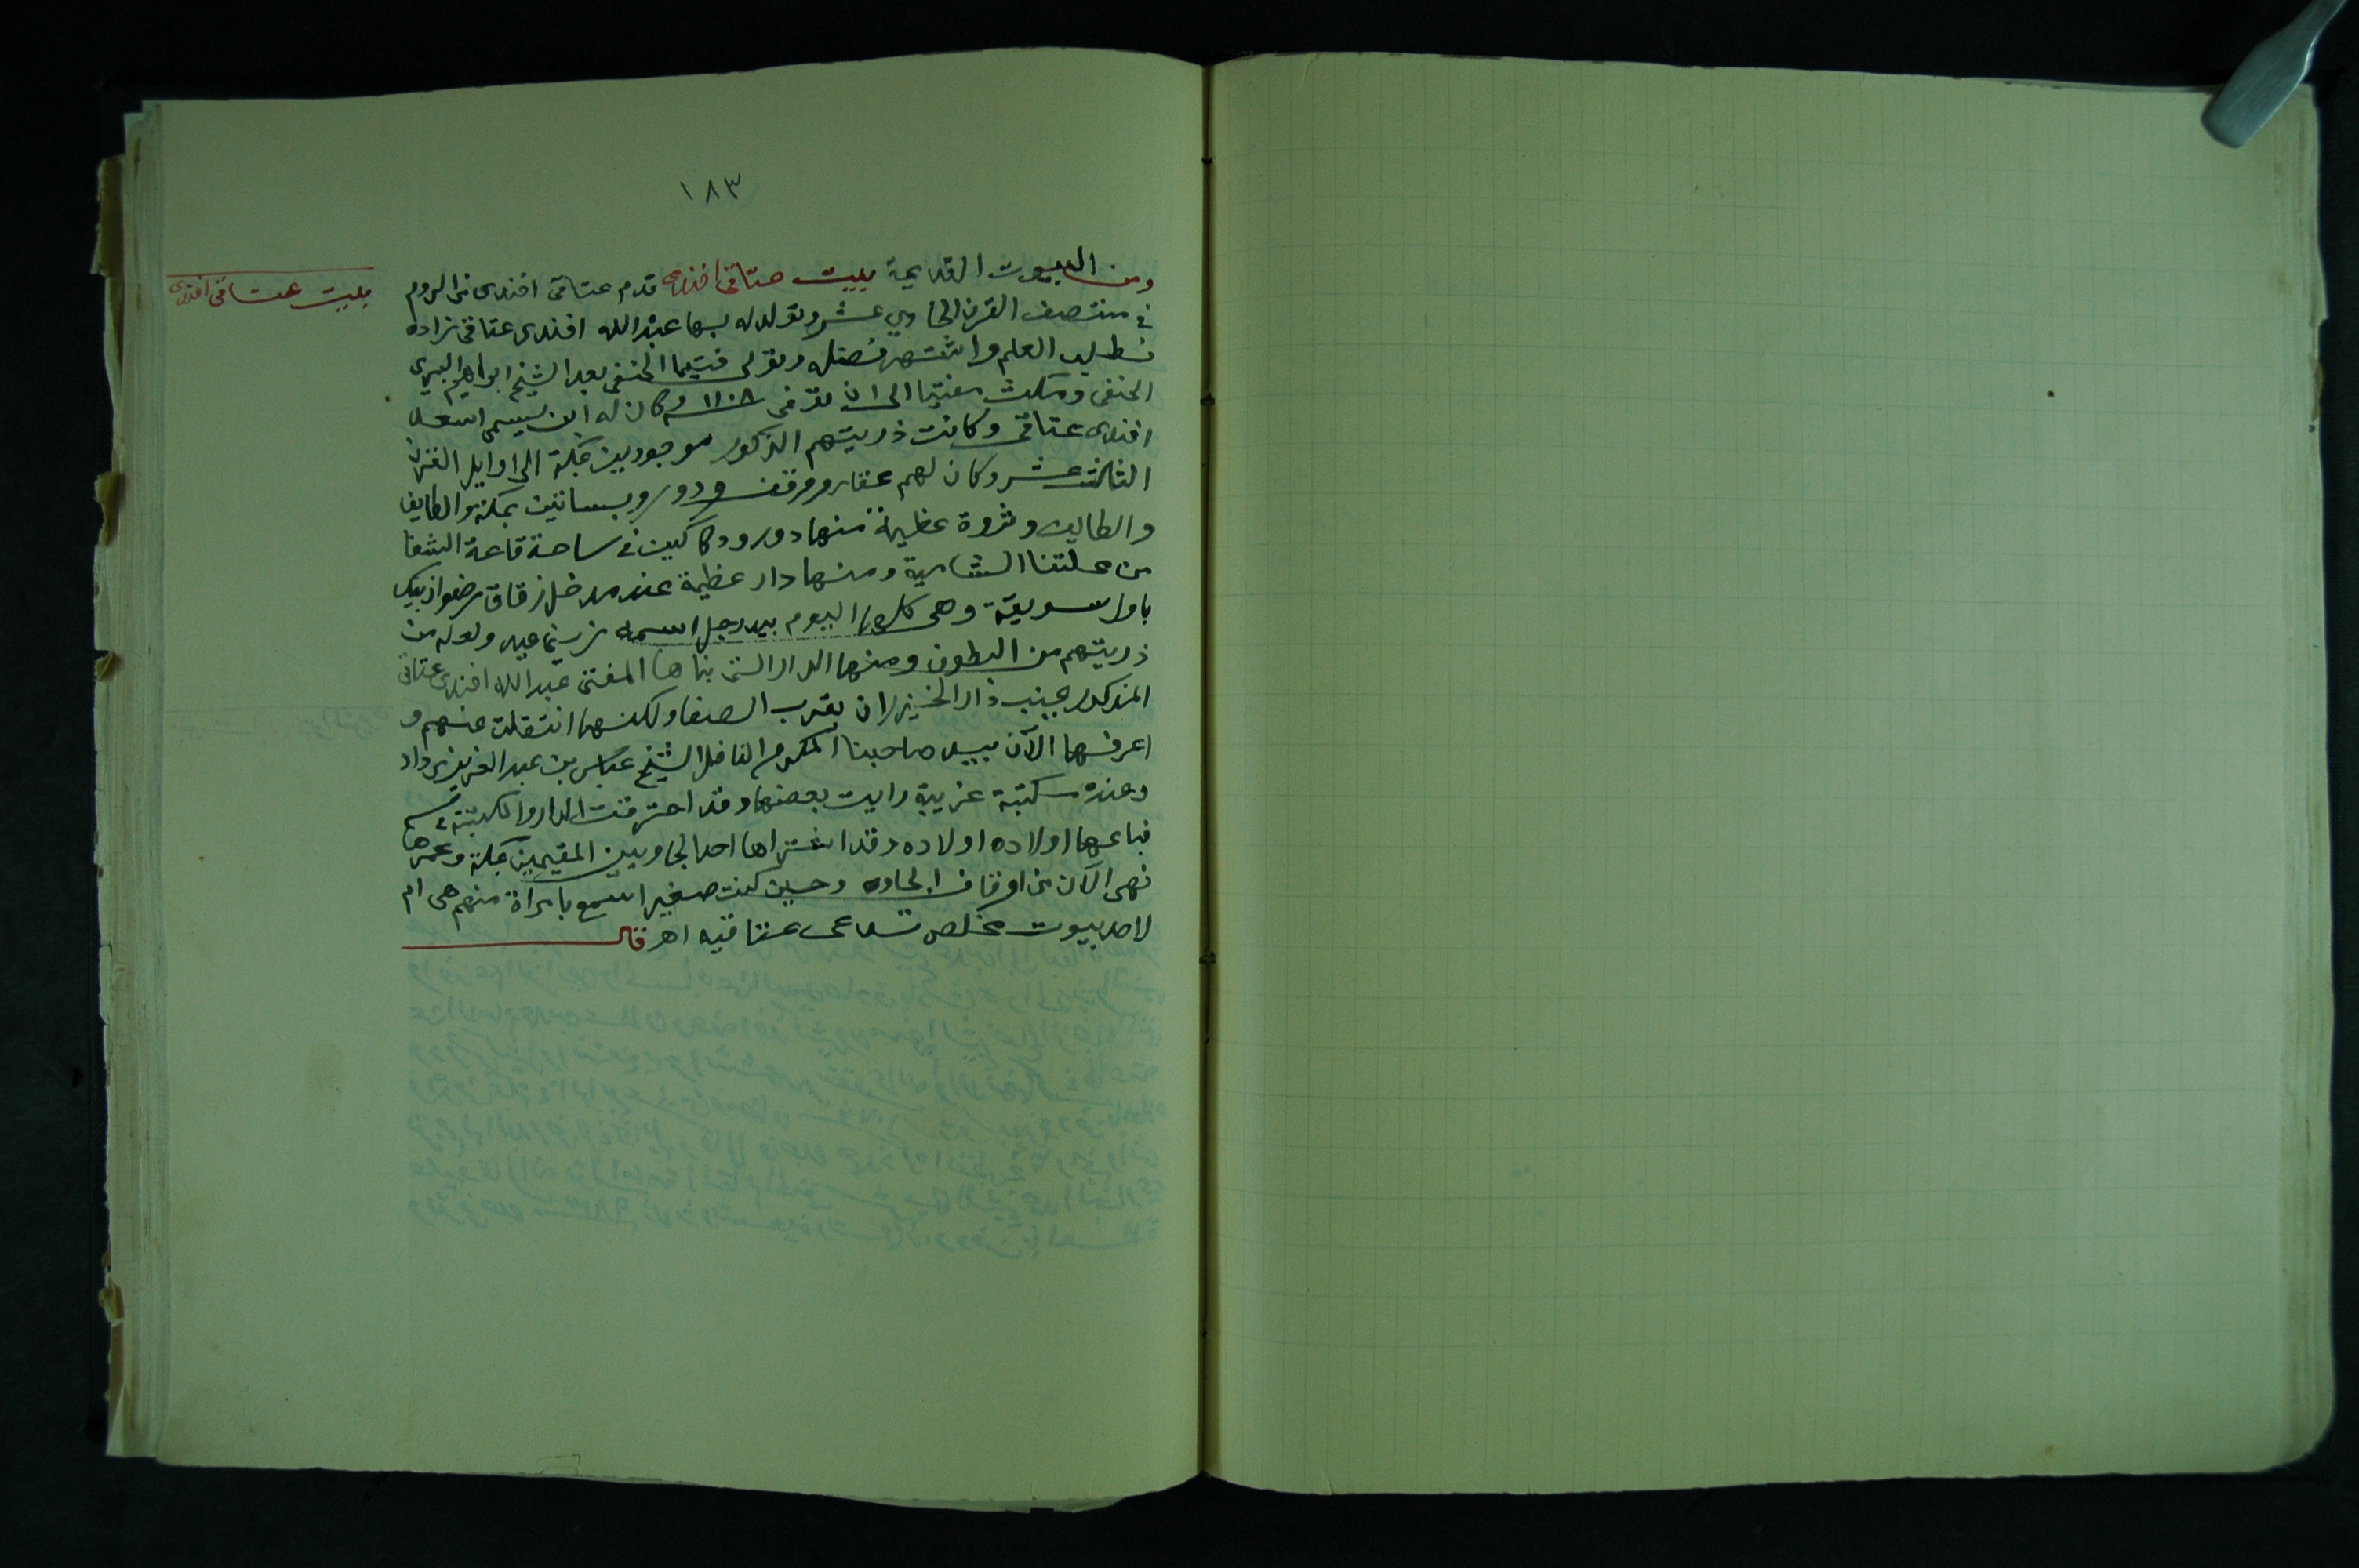 ١٨٣
ومن البيوت القديمة بيت عتاقى افندى قدم عتاقى افندى من الروم
بيت عتاقى افندى
فى منتصف القرن الحادي عشر وتولد له بها عبد الله افندى عتاقى زاده
فطلب العلم واشتهر فضله وتولى فتيا الحنفى بعد الشيخ ابراهيم البيرى
الحنفى ومكث مفتيا الى ان توفى ١١٠٨ وكان له ابن يسمى اسعد
افندى عتاقى وكانت ذريتهم الذكور موجودين بمكة الى اوايل القرن
الثالث عشر وكان لهم عقار ودور وبساتين بمكة والطايف
والطايف وثروة عظيمة منها دور ودكاكين فى ساحة قاعة الشفا
من محلتنا الشامية ومنها دار عظيمة عند مدخل زقاق رضوان بيك
باول سويقة وهى اليوم بيد رجل اسمه ولعله من
ذريتهم من البطون ومنها الدار التى بناها المفتى عبد الله افندى عتاقى
المذكور بجنب دار الخيزران بقرب الصفا ولكنها انتقلت عنهم و
اعرفها الآن بيد صاحبنا المكرم الفاضل الشيخ عباس بن عبد العزيز مرداد
وعنده مكتبة غريبة رايت بعضها وقد احترقت الدار والمكتبة
فباعها اولاده اولاده وقد اشتراها احد الجاويين المقيمين بمكة وعمرها
فهى الآن من اوقاف الجاوه وحين كنت صغير اسمع بامراة منهم هى ام
لاحد بيوت مخلص تدعى عتاقيه اهـ قال